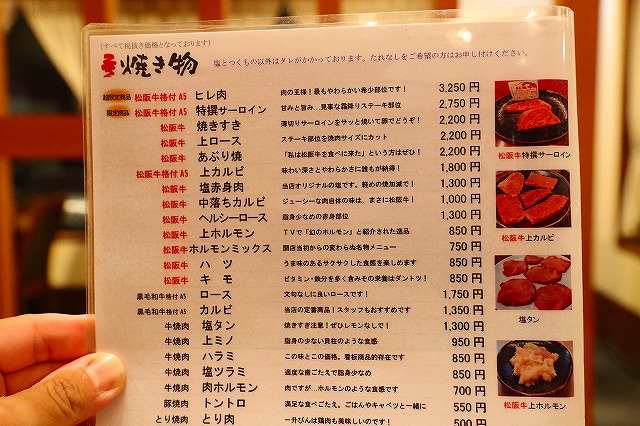 (すべて税抜き価格となっております)
焼き物 塩とつくもの以外はタレがかかっております。たれなしをご希望の方はお申し付けください。
松阪牛格付A5 ヒレ肉 肉の王様！最もやわらかい希少部位です！ 3,250円
限定商品 松阪牛格付A5 特撰サーロイン 甘みと旨み…見事な霜降りステーキ部位 2,750円
松阪牛 焼きすき 薄切りサーロインをサッと焼いて豚でどうぞ！ 2,200円
松阪牛 上ロース ステーキ部位を焼肉サイズにカット 2,200円
松阪牛 あぶり焼 「私は松阪牛を食べに来た」という方はぜひ！ 2,200円
松阪牛格付A5 上カルビ 味わい深さとやわらかさに誰もが納得！ 1,800円
松阪牛 塩赤身肉 当店オリジナルの塩です。軽めの焼加減で！ 1,300円
松阪牛 中落ちカルビ ジューシーな肉自体の味は、まさに松阪牛！ 1,000円
松阪牛 ヘルシーロース 脂身少なめの赤身部位 1,300円
松阪牛 上ホルモン TVで「幻のホルモン」と紹介された逸品 850円
松阪牛 ホルモンミックス 開店当初からの変わらぬ名物メニュー 750円
松阪牛 ハツ うま味のあるサクサクした食感を楽しめます 850円
松阪牛 キモ ビタミン・鉄分を多く含みその栄養はダントツ！ 850円
黒毛和牛格付A5 ロース 文句なしに良いロースです！ 1,750円
黒毛和牛格付A5 カルビ 当店の定番商品！スタッフもおすすめです 1,350円
牛焼肉 塩タン 焼きすぎ注意！ぜひレモンなしで！ 1,300円
牛焼肉 上ミノ 脂身の少ない貝柱のような食感 950円
牛焼肉 ハラミ この味とこの価格。看板商品的存在です 950円
牛焼肉 塩ツラミ 適度な歯ごたえで脂身少なめ 850円
牛焼肉 肉ホルモン 肉ですが…ホルモンのような食感です 700円
豚焼肉 トントロ 満足な食べごたえ。ごはんやキャベツと一緒に 550円
とり焼肉 とり肉 一升びんは鶏肉も美味しいのです！ 500円
松阪牛特撰サーロイン
松阪牛上カルビ
塩タン
松阪牛上ホルモン